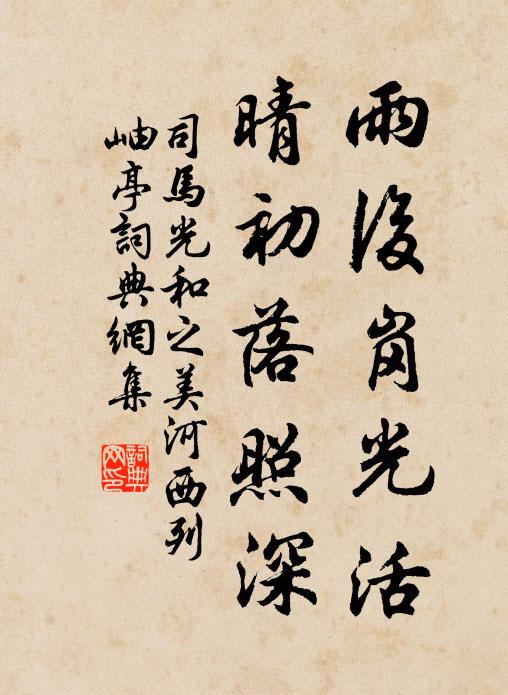 雨後岗光活
晴初落照深
司馬光和之美河西列
岫亭詞典網集
詞典網印